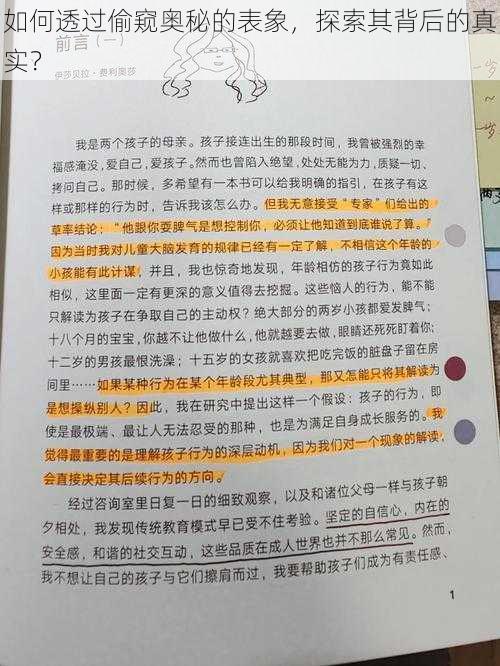 如何透过偷窥奥秘的表象，探索其背后的真
实？
前言（一）
伊莎贝拉·费利奥莎
我是两个孩子的母亲。孩子接连出生的那段时间，我曾被强烈的幸
福感淹没，爱自己，爱孩子。然而也曾陷入绝望，处处无能为力，质疑一切、
拷问自己。那时候，多希望有一本书可以给我明确的指引，在孩子有这
样或那样的行为时，告诉我该怎么办。但我无意接受“专家”们给出的
草率结论：“他跟你耍脾气是想控制你，必须让他知道到底谁说了算。”
因为当时我对儿童大脑发育的规律已经有一定了解，不相信这个年龄的
小孩能有此计谋，并且，我也惊奇地发现，年龄相仿的孩子行为竟如此
相似，这里面一定有更深的意义值得去挖掘。这些恼人的行为，能不能
只解读为孩子在争取自己的主动权？绝大部分的两岁小孩都爱发脾气；
十八个月的宝宝，你越不让他做什么，他就越要去做，眼睛还死死盯着你；
十二岁的男孩最恨洗澡；十五岁的女孩就喜欢把吃完饭的脏盘子留在房
间里……如果某种行为在某个年龄段尤其典型，那又怎能只将其解读为
是想操纵别人？因此，我在研究中提出这样一个假设：孩子的行为，即
使是最极端、最让人无法忍受的那种，也是为满足自身成长服务的。我
觉得最重要的是理解孩子行为的深层动机，因为我们对一个现象的解读，
会直接决定其后续行为的方向。
经过咨询室里日复一日的细致观察，以及和诸位父母一样与孩子朝
夕相处，我发现传统教育模式早已受不住考验。坚定的自信心，内在的
安全感，和谐的社交互动，这些品质在成人世界也并不那么常见。然而，
我不想让自己的孩子与它们擦肩而过，我要帮助孩子们成为有责任感、
1